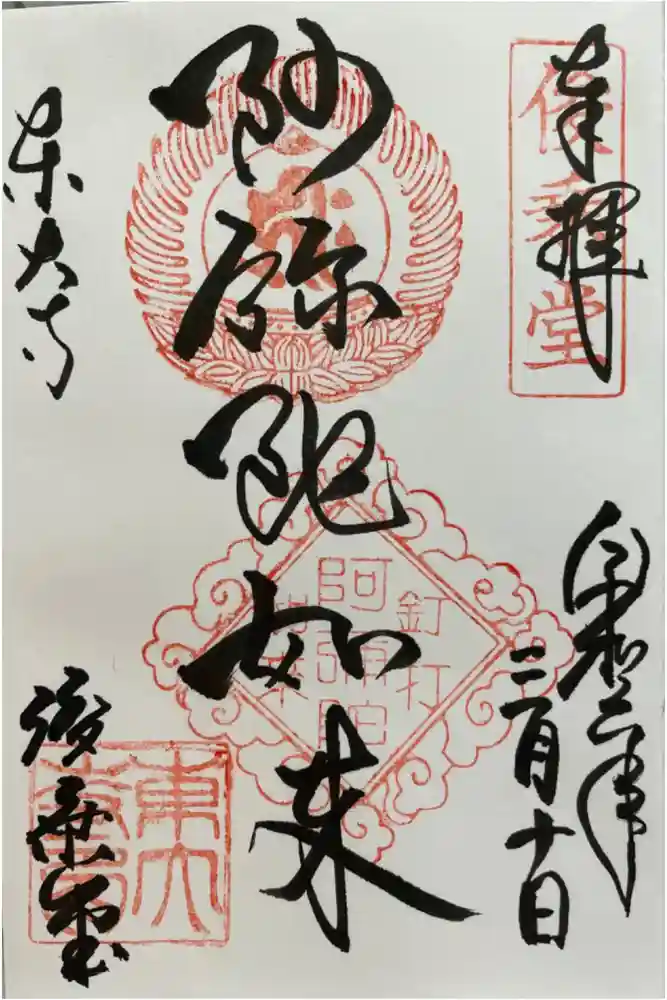 奉拝
俊乗堂
令和二年
三月十日
阿弥陀如来
釘打
阿彌陀
如来
東大寺
俊乗堂
東大